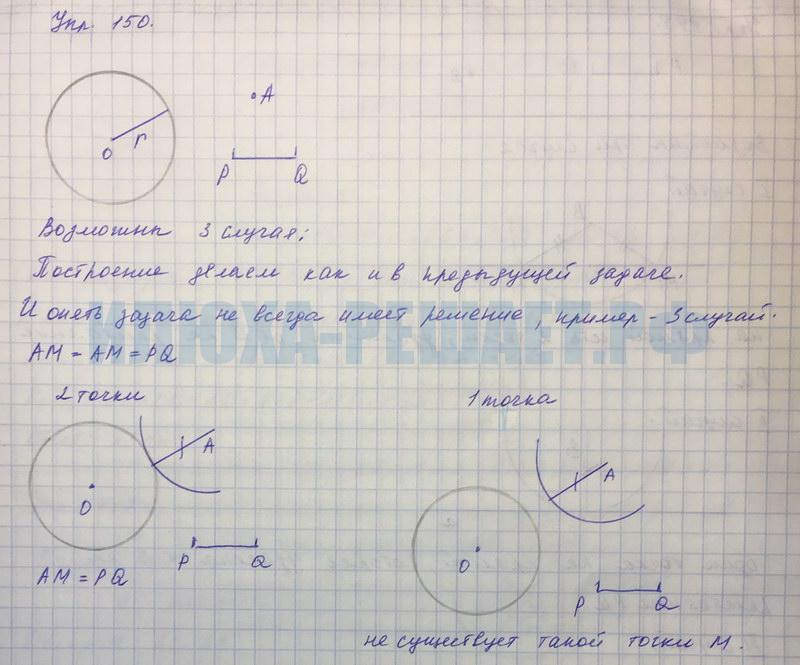 Упр. 150.
A
O r
P Q
Возможны 3 случая:
Построение делаем как и в предыдущей задаче.
И опять задача не всегда имеет решение, пример - 3 случай.
ИЛЮХА-РЕШАЕТ.РФ
AM = AM = PQ
2 точки
1 точка
A
A
O
O
P Q
P Q
AM = PQ
не существует такой точки M.